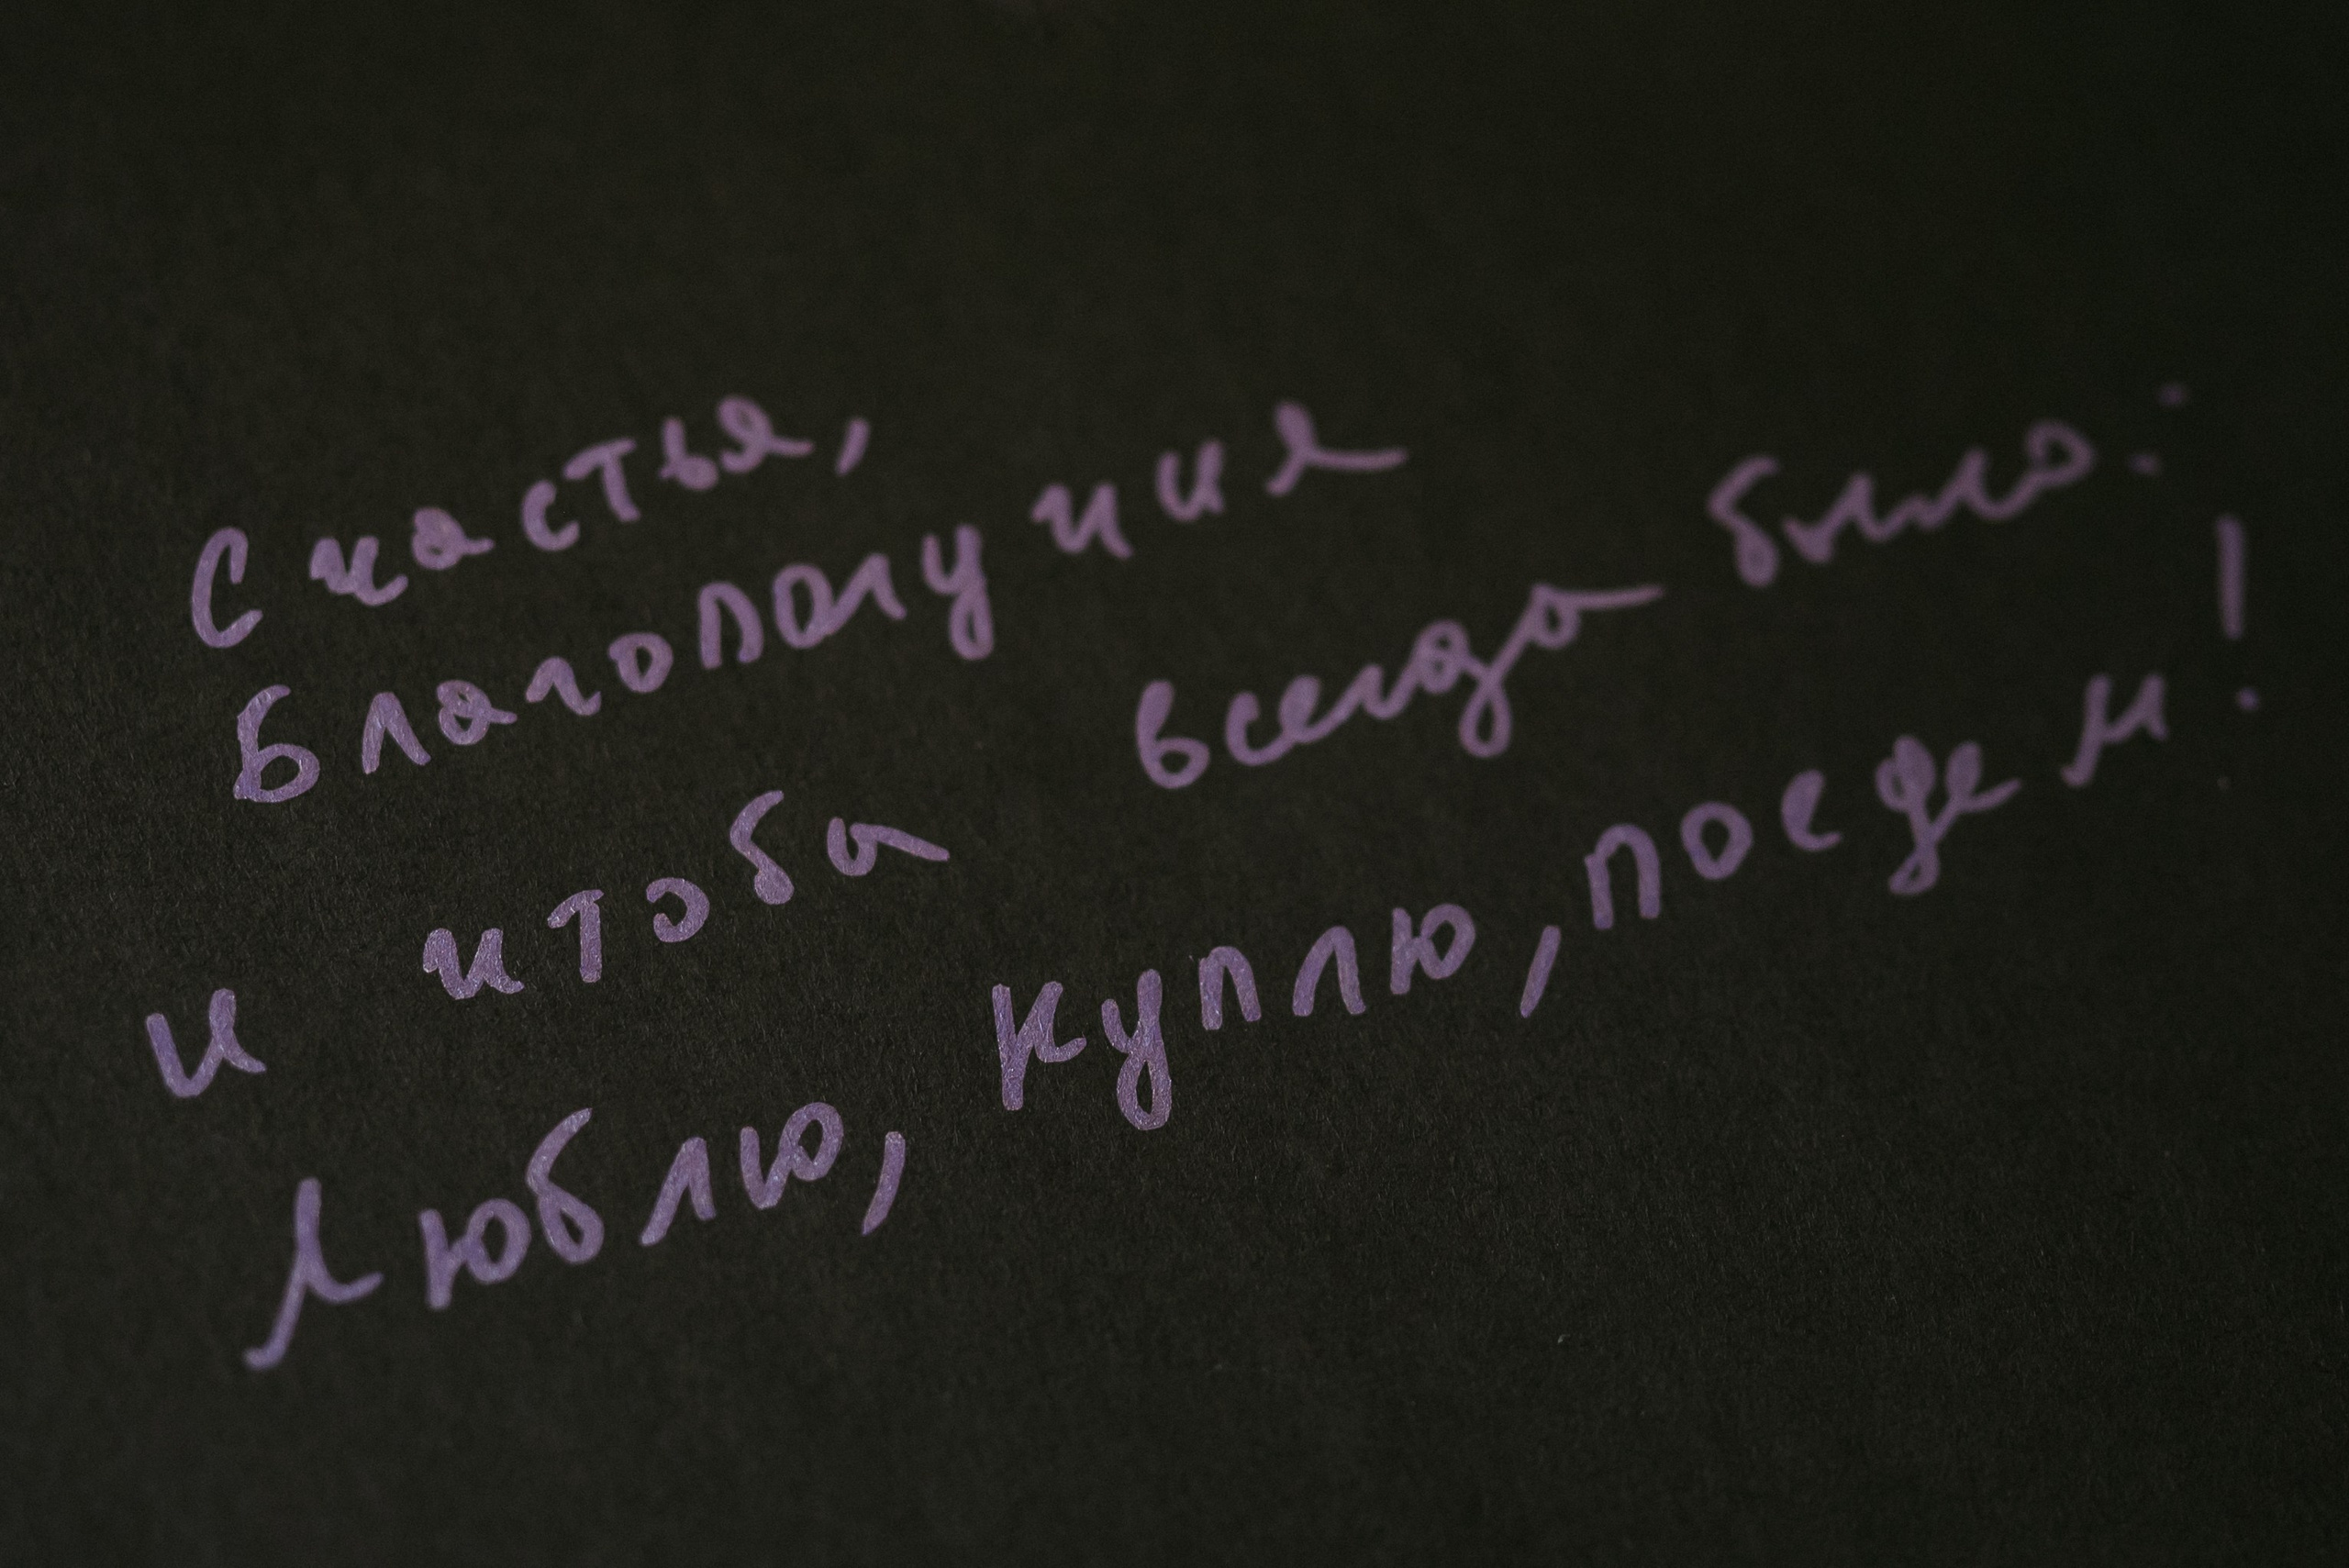 Счастья,
Благополучия
и чтоба всегда было:
Люблю, куплю, поедем!